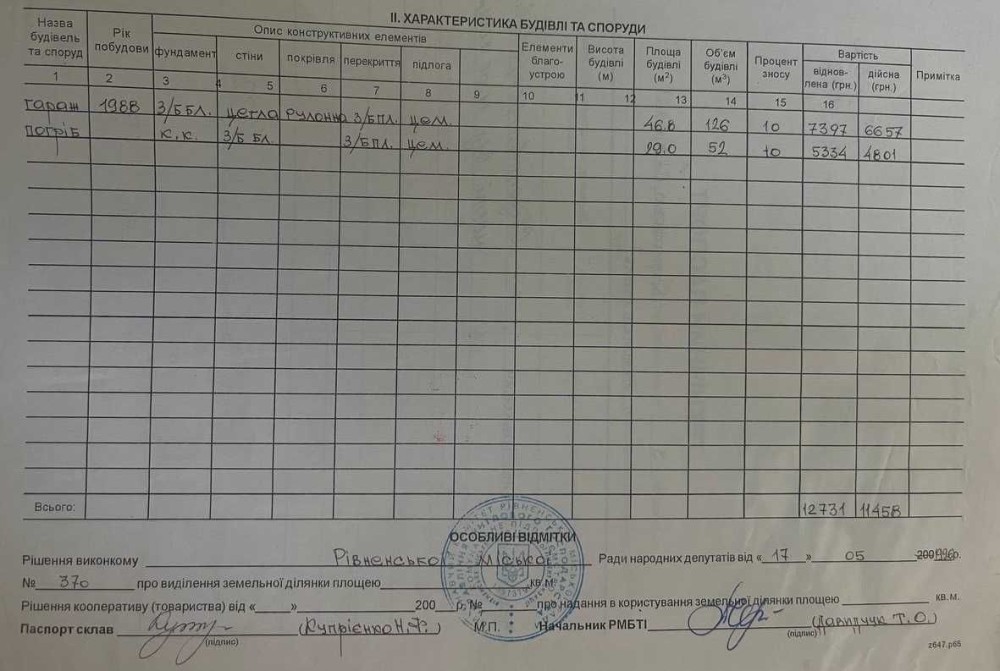 II. ХАРАКТЕРИСТИКА БУДІВЛІ ТА СПОРУДИ
Назва будівель та споруд Рік побудови Опис конструктивних елементів Елементи благо-устрою Висота будівлі (м) Площа будівлі (м²) Об'єм будівлі (м³) Процент зносу Вартість Примітка
фундамент стіни покрівля перекриття підлога віднов-лена (грн.) дійсна (грн.)
1 2 3 4 5 6 7 8 9 10 11 12 13 14 15 16
гараж 1988 З/Б БЛ. цегла рулонна З/Б ПЛ. цем. 46.8 126 10 7397 6657
погріб К.К. З/Б БЛ. З/Б ПЛ. цем. 29.0 52 10 5334 4801
Всього: 12731 11458
ОСОБЛИВІ ВІДМІТКИ
Рішення виконкому Рівненської міської Ради народних депутатів від « 17 » 05 200 1996р.
№ 370 про виділення земельної ділянки площею кв.м.
Рішення кооперативу (товариства) від « » 200 р. № про надання в користування земельної ділянки площею кв. м.
Паспорт склав (Купрієнко Н.Ф.) М.П. Начальник РМБТІ (Давидчук Т.О.)
(підпис) (підпис)
z647.p65